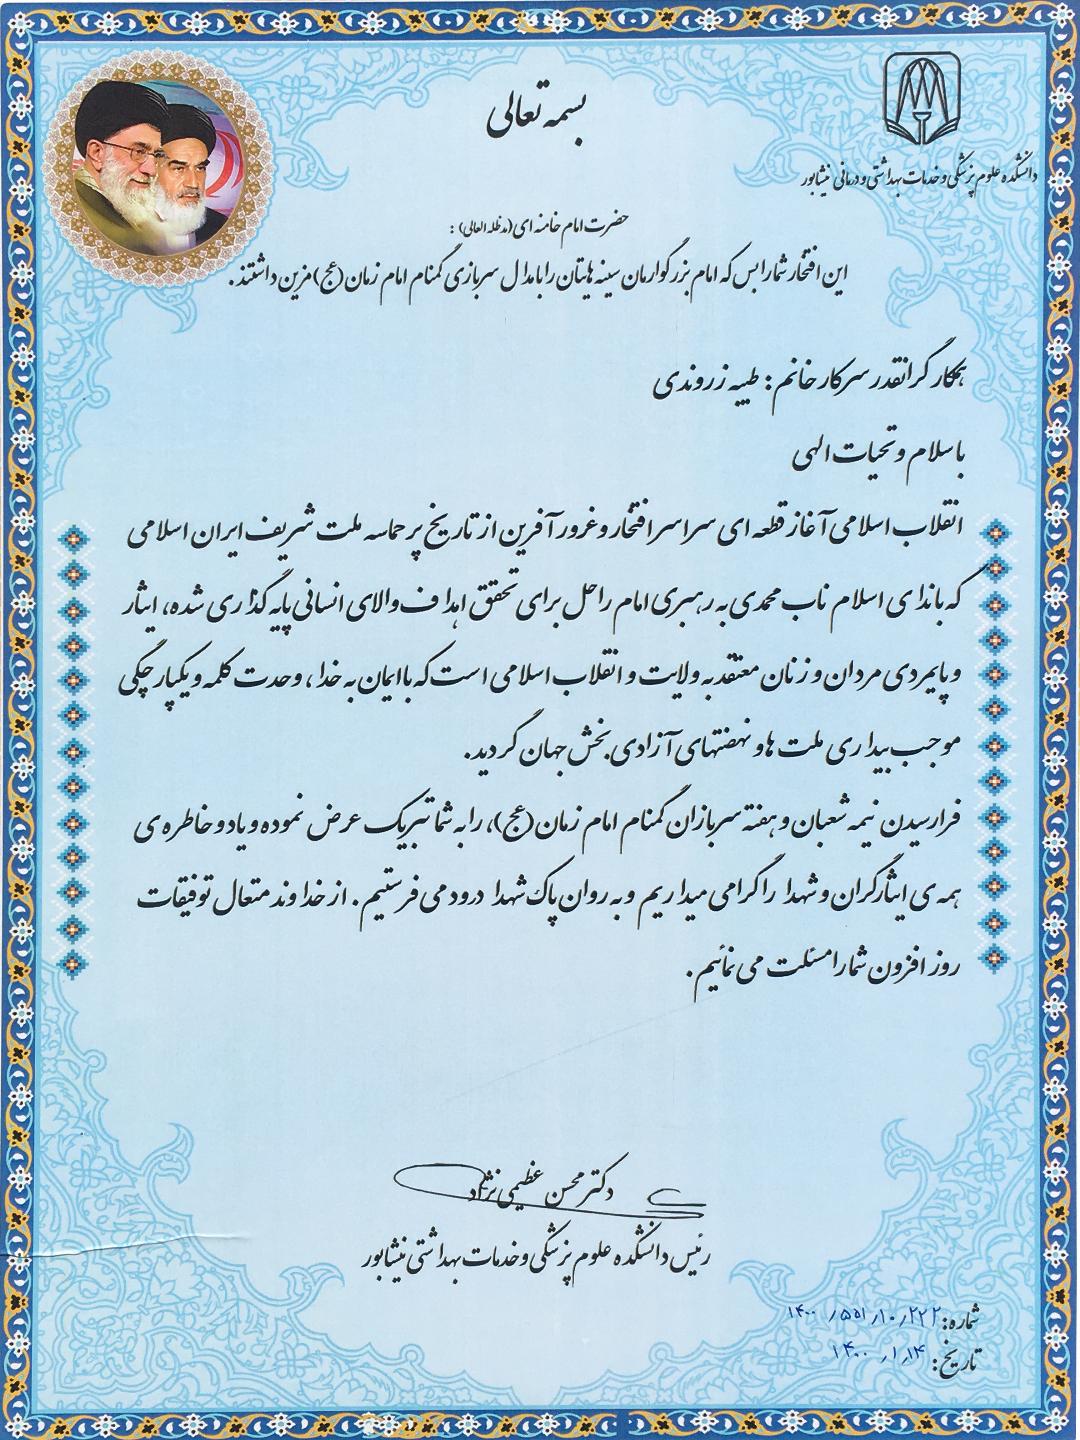 بسمه تعالی
دانشکده علوم پزشکی و خدمات بهداشتی و درمانی نیشابور
حضرت امام خامنه ای (مدظله العالی) :
این افتخار شما را بس که امام بزرگوارمان سینه هایتان را با مدال سربازی گمنام امام زمان (عج) مزین داشتند .
همکار گرانقدر سرکار خانم : طیبه زروندی
با سلام و تحیات الهی
انقلاب اسلامی آغاز قطعه ای سراسر افتخار و غرور آفرین از تاریخ پر حماسه ملت شریف ایران اسلامی
که با ندای اسلام ناب محمدی به رهبری امام راحل برای تحقق اهداف والای انسانی پایه گذاری شده، ایثار
و پایمردی مردان و زنان معتقد به ولایت و انقلاب اسلامی است که با ایمان به خدا ، وحدت کلمه و یکپارچگی
موجب بیداری ملت ها و نهضتهای آزادی بخش جهان گردید .
فرارسیدن نیمه شعبان و هفته سربازان گمنام امام زمان (عج)، را به شما تبریک عرض نموده و یاد و خاطره ی
همه ی ایثارگران و شهدا را گرامی میداریم و به روان پاک شهدا درود می فرستیم . از خداوند متعال توفیقات
روز افزون شما را مسئلت می نمائیم .
دکتر محسن عظیمی نژاد
رئیس دانشکده علوم پزشکی و خدمات بهداشتی نیشابور
شماره: ۱۴۰۰/۵۵۱/۱۰/۲۲۲
تاریخ: ۱۴۰۰/۱/۱۴